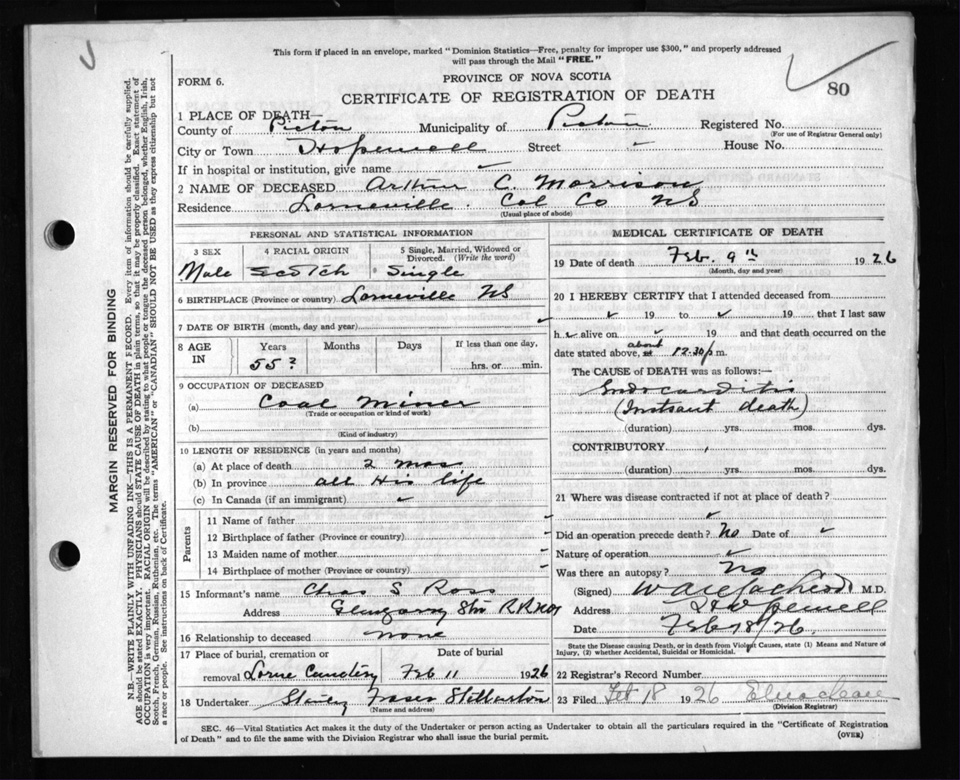 This form if placed in an envelope, marked "Dominion Statistics—Free, penalty for improper use $300," and properly addressed
will pass through the Mail "FREE."
FORM 6.
PROVINCE OF NOVA SCOTIA
80
CERTIFICATE OF REGISTRATION OF DEATH
1 PLACE OF DEATH—
County of Pictou Municipality of Pictou Registered No.
(For use of Registrar General only)
City or Town Hopewell Street House No.
If in hospital or institution, give name
2 NAME OF DECEASED Arthur C. Morrison
Residence Lorneville Col Co NS
(Usual place of abode)
PERSONAL AND STATISTICAL INFORMATION
3 SEX 4 RACIAL ORIGIN 5 Single, Married, Widowed or
Divorced. (Write the word)
Male Scotch Single
6 BIRTHPLACE (Province or country) Lorneville NS
7 DATE OF BIRTH (month, day and year)
8 AGE IN Years Months Days If less than one day,
55? hrs. or min.
9 OCCUPATION OF DECEASED
(a) Coal Miner
(Trade or occupation or kind of work)
(b)
(Kind of industry)
10 LENGTH OF RESIDENCE (in years and months)
(a) At place of death 2 mos
(b) In province all His life
(c) In Canada (if an immigrant)
Parents
11 Name of father
12 Birthplace of father (Province or country)
13 Maiden name of mother
14 Birthplace of mother (Province or country)
15 Informant's name Chas S Ross
Address Glengarry Stn R.R.
16 Relationship to deceased none
17 Place of burial, cremation or Date of burial
removal Lorne Cemetery Feb 11 1926
18 Undertaker Fraser Stellarton
(Name and address)
MEDICAL CERTIFICATE OF DEATH
19 Date of death Feb. 9th 1926
(Month, day and year)
20 I HEREBY CERTIFY that I attended deceased from
19 to 19 that I last saw
h alive on 19 and that death occurred on the
date stated above, at about 12.30 p m.
The CAUSE of DEATH was as follows:—
Endocarditis
(Instant death)
(duration) yrs. mos. dys.
CONTRIBUTORY
(duration) yrs. mos. dys.
21 Where was disease contracted if not at place of death?
Did an operation precede death? No Date of
Nature of operation
Was there an autopsy? No
(Signed) M.D.
Address Hopewell
Date Feb 18/26.
State the Disease causing Death, or in death from Violent Causes, state (1) Means and Nature of
Injury, (2) whether Accidental, Suicidal or Homicidal.
22 Registrar's Record Number
23 Filed Feb 18 1926
(Division Registrar)
SEC. 46—Vital Statistics Act makes it the duty of the Undertaker or person acting as Undertaker to obtain all the particulars required in the "Certificate of Registration
of Death" and to file the same with the Division Registrar who shall issue the burial permit.
(OVER)
MARGIN RESERVED FOR BINDING
N.B.—WRITE PLAINLY WITH UNFADING INK—THIS IS A PERMANENT RECORD. Every item of information should be carefully supplied.
AGE should be stated EXACTLY. PHYSICIANS should STATE CAUSE OF DEATH in plain terms, so that it may be properly classified. Exact statement of
OCCUPATION is very important. RACIAL ORIGIN will be described by stating to what people or tongue the deceased person belonged, whether English, Irish,
Scotch, French, German, Russian, Ruthenian, etc. The terms "AMERICAN" or "CANADIAN" SHOULD NOT BE USED as they express citizenship but not
a race or people. See instructions on back of Certificate.